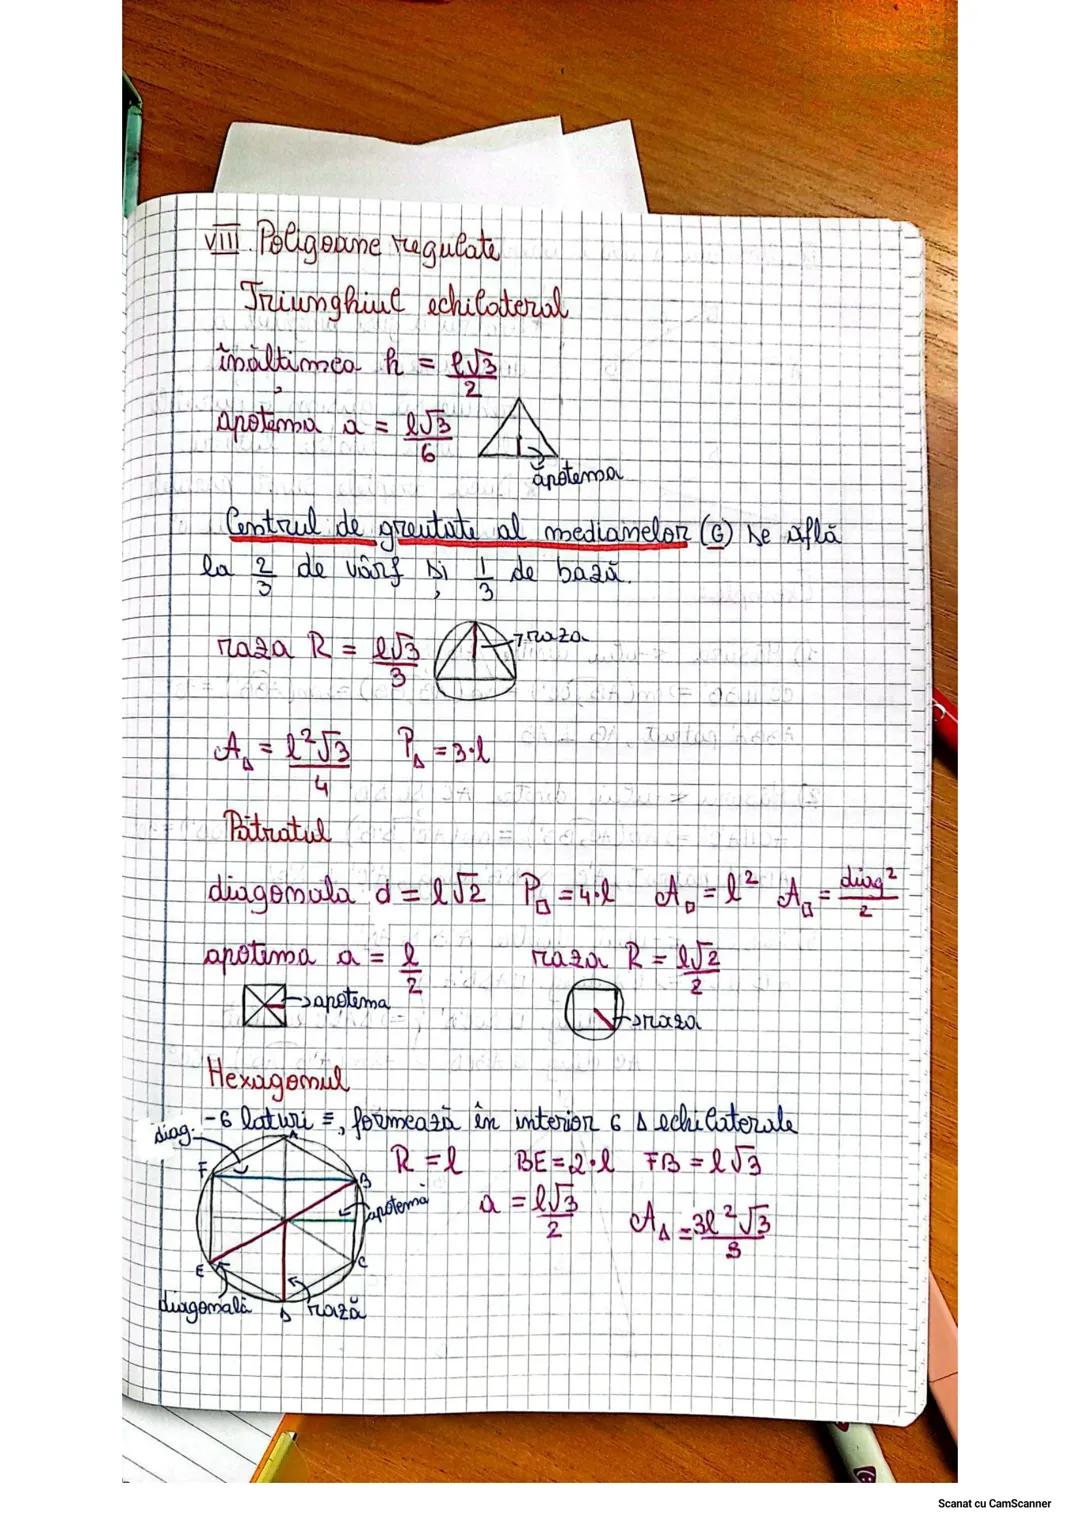 VIII. Poligoane regulate
Triunghiul echilateral
înălțimea h = l√3/2
apotema a = l√3/6
apotema
Centrul de greutate al medianelor (G) se află
la 2/3 de vârf și 1/3 de bază.
raza R = l√3/3
raza
A△ = l²√3/4 P△ = 3·l
Pătratul
diagonala d = l√2 P□ = 4·l A□ = l² A□ = diag²/2
apotema a = l/2 raza R = l√2/2
apotema raza
Hexagonul
-6 laturi ≡, formează în interior 6 △ echilaterale
diag.
A
R = l BE = 2·l FB = l√3
F
B
apotema a = l√3/2 A△ = 3l²√3/3
E
C
diagonală D rază
Scanat cu CamScanner